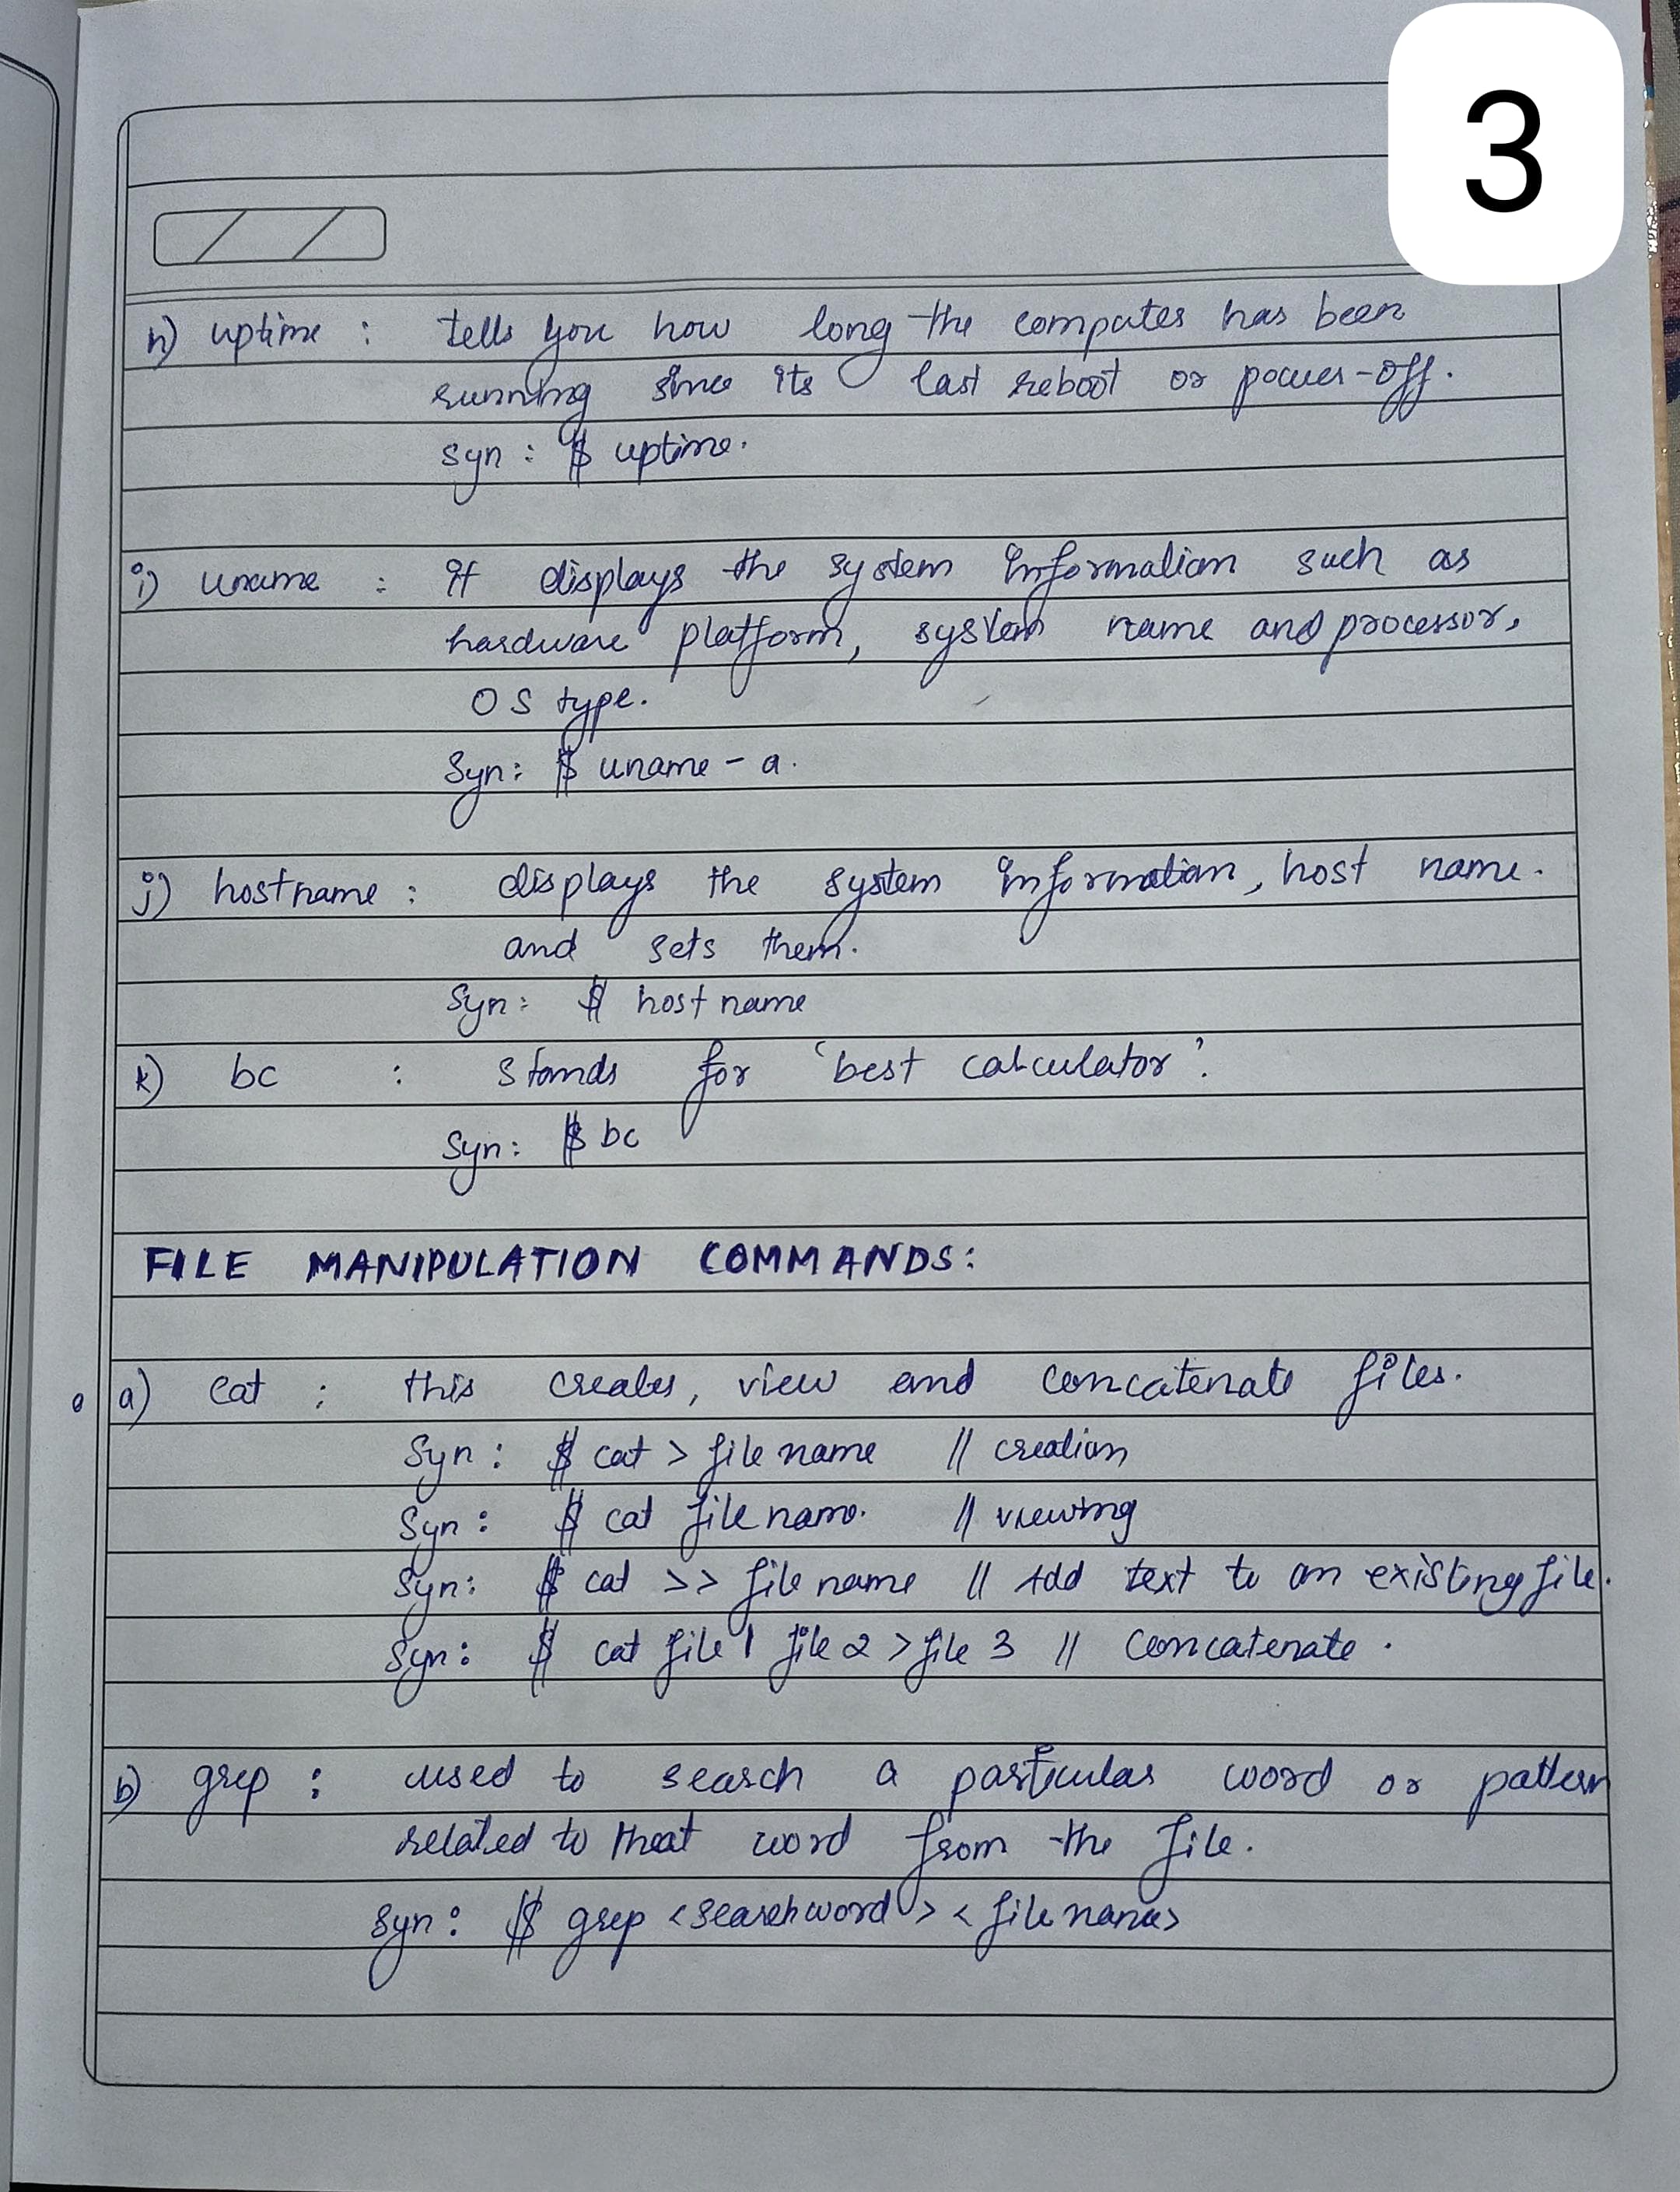 3
h) uptime : tells you how long the computer has been
running since its last reboot or power-off.
Syn : $ uptime.
i) uname : It displays the system information such as
hardware platform, system name and processor,
OS type.
Syn: $ uname - a.
j) hostname : displays the system information, host name.
and sets them.
Syn: $ host name
k) bc : stands for 'best calculator'.
Syn: $ bc
FILE MANIPULATION COMMANDS:
a) cat : this creates, view and concatenate files.
Syn : $ cat > file name // creation
Syn : $ cat file name. // viewing
Syn: $ cat >> file name // Add text to an existing file.
Syn: $ cat file 1 file 2 > file 3 // Concatenate.
b) grep : used to search a particular word or pattern
related to that word from the file.
Syn: $ grep <search word> <file name>